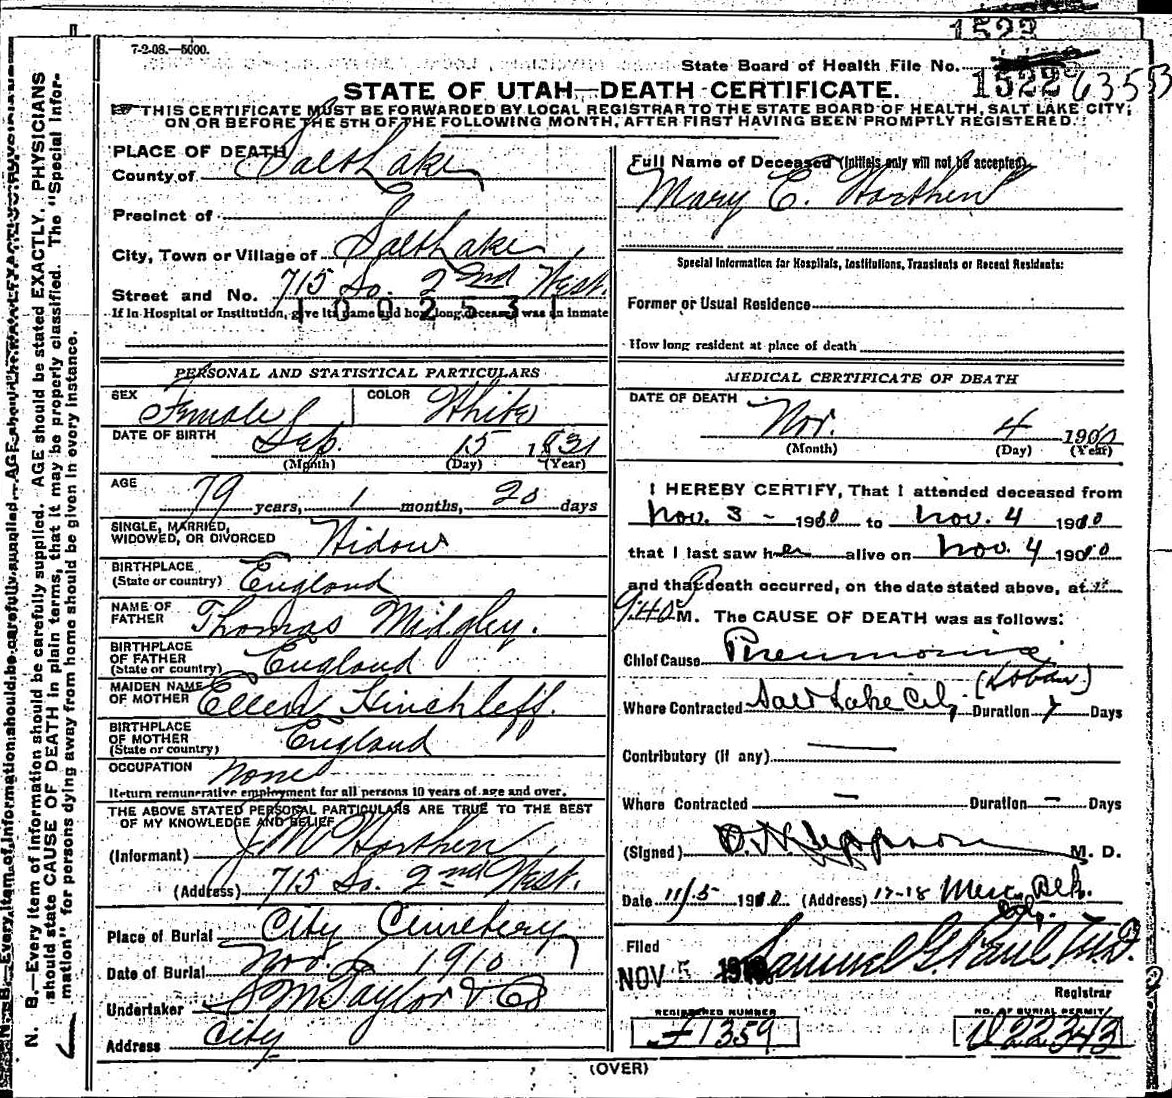 1522
7-2-08.—5000.
State Board of Health File No.
1522 6355
STATE OF UTAH—DEATH CERTIFICATE.
THIS CERTIFICATE MUST BE FORWARDED BY LOCAL REGISTRAR TO THE STATE BOARD OF HEALTH, SALT LAKE CITY,
ON OR BEFORE THE 5TH OF THE FOLLOWING MONTH, AFTER FIRST HAVING BEEN PROMPTLY REGISTERED.
N. B.—Every item of information should be carefully supplied. AGE should be stated EXACTLY. PHYSICIANS
should state CAUSE OF DEATH in plain terms, that it may be properly classified. The "Special Infor-
mation" for persons dying away from home should be given in every instance.
PLACE OF DEATH
County of Salt Lake
Precinct of
City, Town or Village of Salt Lake
Street and No. 715 So. 2nd West.
1002531
If in Hospital or Institution, give its name and how long deceased was an inmate
PERSONAL AND STATISTICAL PARTICULARS
SEX Female COLOR White
DATE OF BIRTH Sep. 15 1831
(Month) (Day) (Year)
AGE 79 years, 1 months, 20 days
SINGLE, MARRIED,
WIDOWED, OR DIVORCED Widow
BIRTHPLACE
(State or country) England
NAME OF
FATHER Thomas Midgley.
BIRTHPLACE
OF FATHER
(State or country) England
MAIDEN NAME
OF MOTHER Ellen Hinchleff.
BIRTHPLACE
OF MOTHER
(State or country) England
OCCUPATION None
Return remunerative employment for all persons 10 years of age and over.
THE ABOVE STATED PERSONAL PARTICULARS ARE TRUE TO THE BEST
OF MY KNOWLEDGE AND BELIEF
(Informant) J M Horthen
(Address) 715 So. 2nd West.
Place of Burial City Cemetery
Date of Burial Nov. 1910
Undertaker S M Taylor & Co
Address City
Full Name of Deceased (Initials only will not be accepted)
Mary E. Horthen
Special Information for Hospitals, Institutions, Transients or Recent Residents:
Former or Usual Residence
How long resident at place of death
MEDICAL CERTIFICATE OF DEATH
DATE OF DEATH
Nov. 4 1910
(Month) (Day) (Year)
I HEREBY CERTIFY, That I attended deceased from
Nov. 3 - 1910 to Nov. 4 1910
that I last saw her alive on Nov. 4 1910
and that death occurred, on the date stated above, at
940 P M. The CAUSE OF DEATH was as follows:
Chief Cause Pneumonia
(Lobar)
Where Contracted Salt Lake City Duration 7 Days
Contributory (if any) —
Where Contracted — Duration — Days
(Signed) M. D.
Date 11/5 1910 (Address) 17-18 Merc. Blk.
City.
Filed
NOV 5 1910 Samuel G. Paul M.D.
Registrar
REGISTERED NUMBER
F1359
NO. OF BURIAL PERMIT
D22343
(OVER)